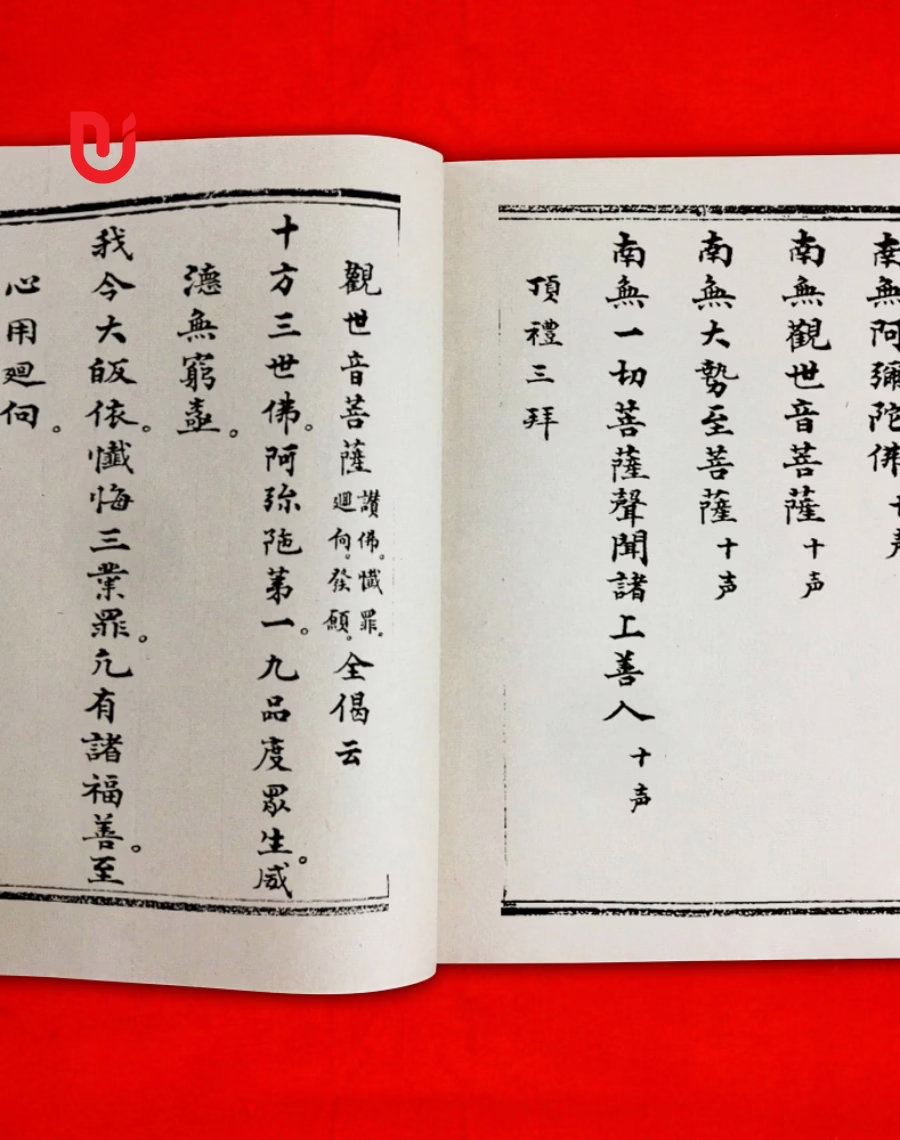 南無阿彌陀佛 十声
南無觀世音菩薩 十声
南無大勢至菩薩 十声
南無一切菩薩聲聞諸上善人 十声
頂禮三拜
觀世音菩薩 讃佛。懺罪。廻向。發願。全偈云
十方三世佛。阿弥陁第一。九品度眾生。威
德無窮盡。
我今大皈依。懺悔三業罪。凢有諸福善。至
心用廻向。